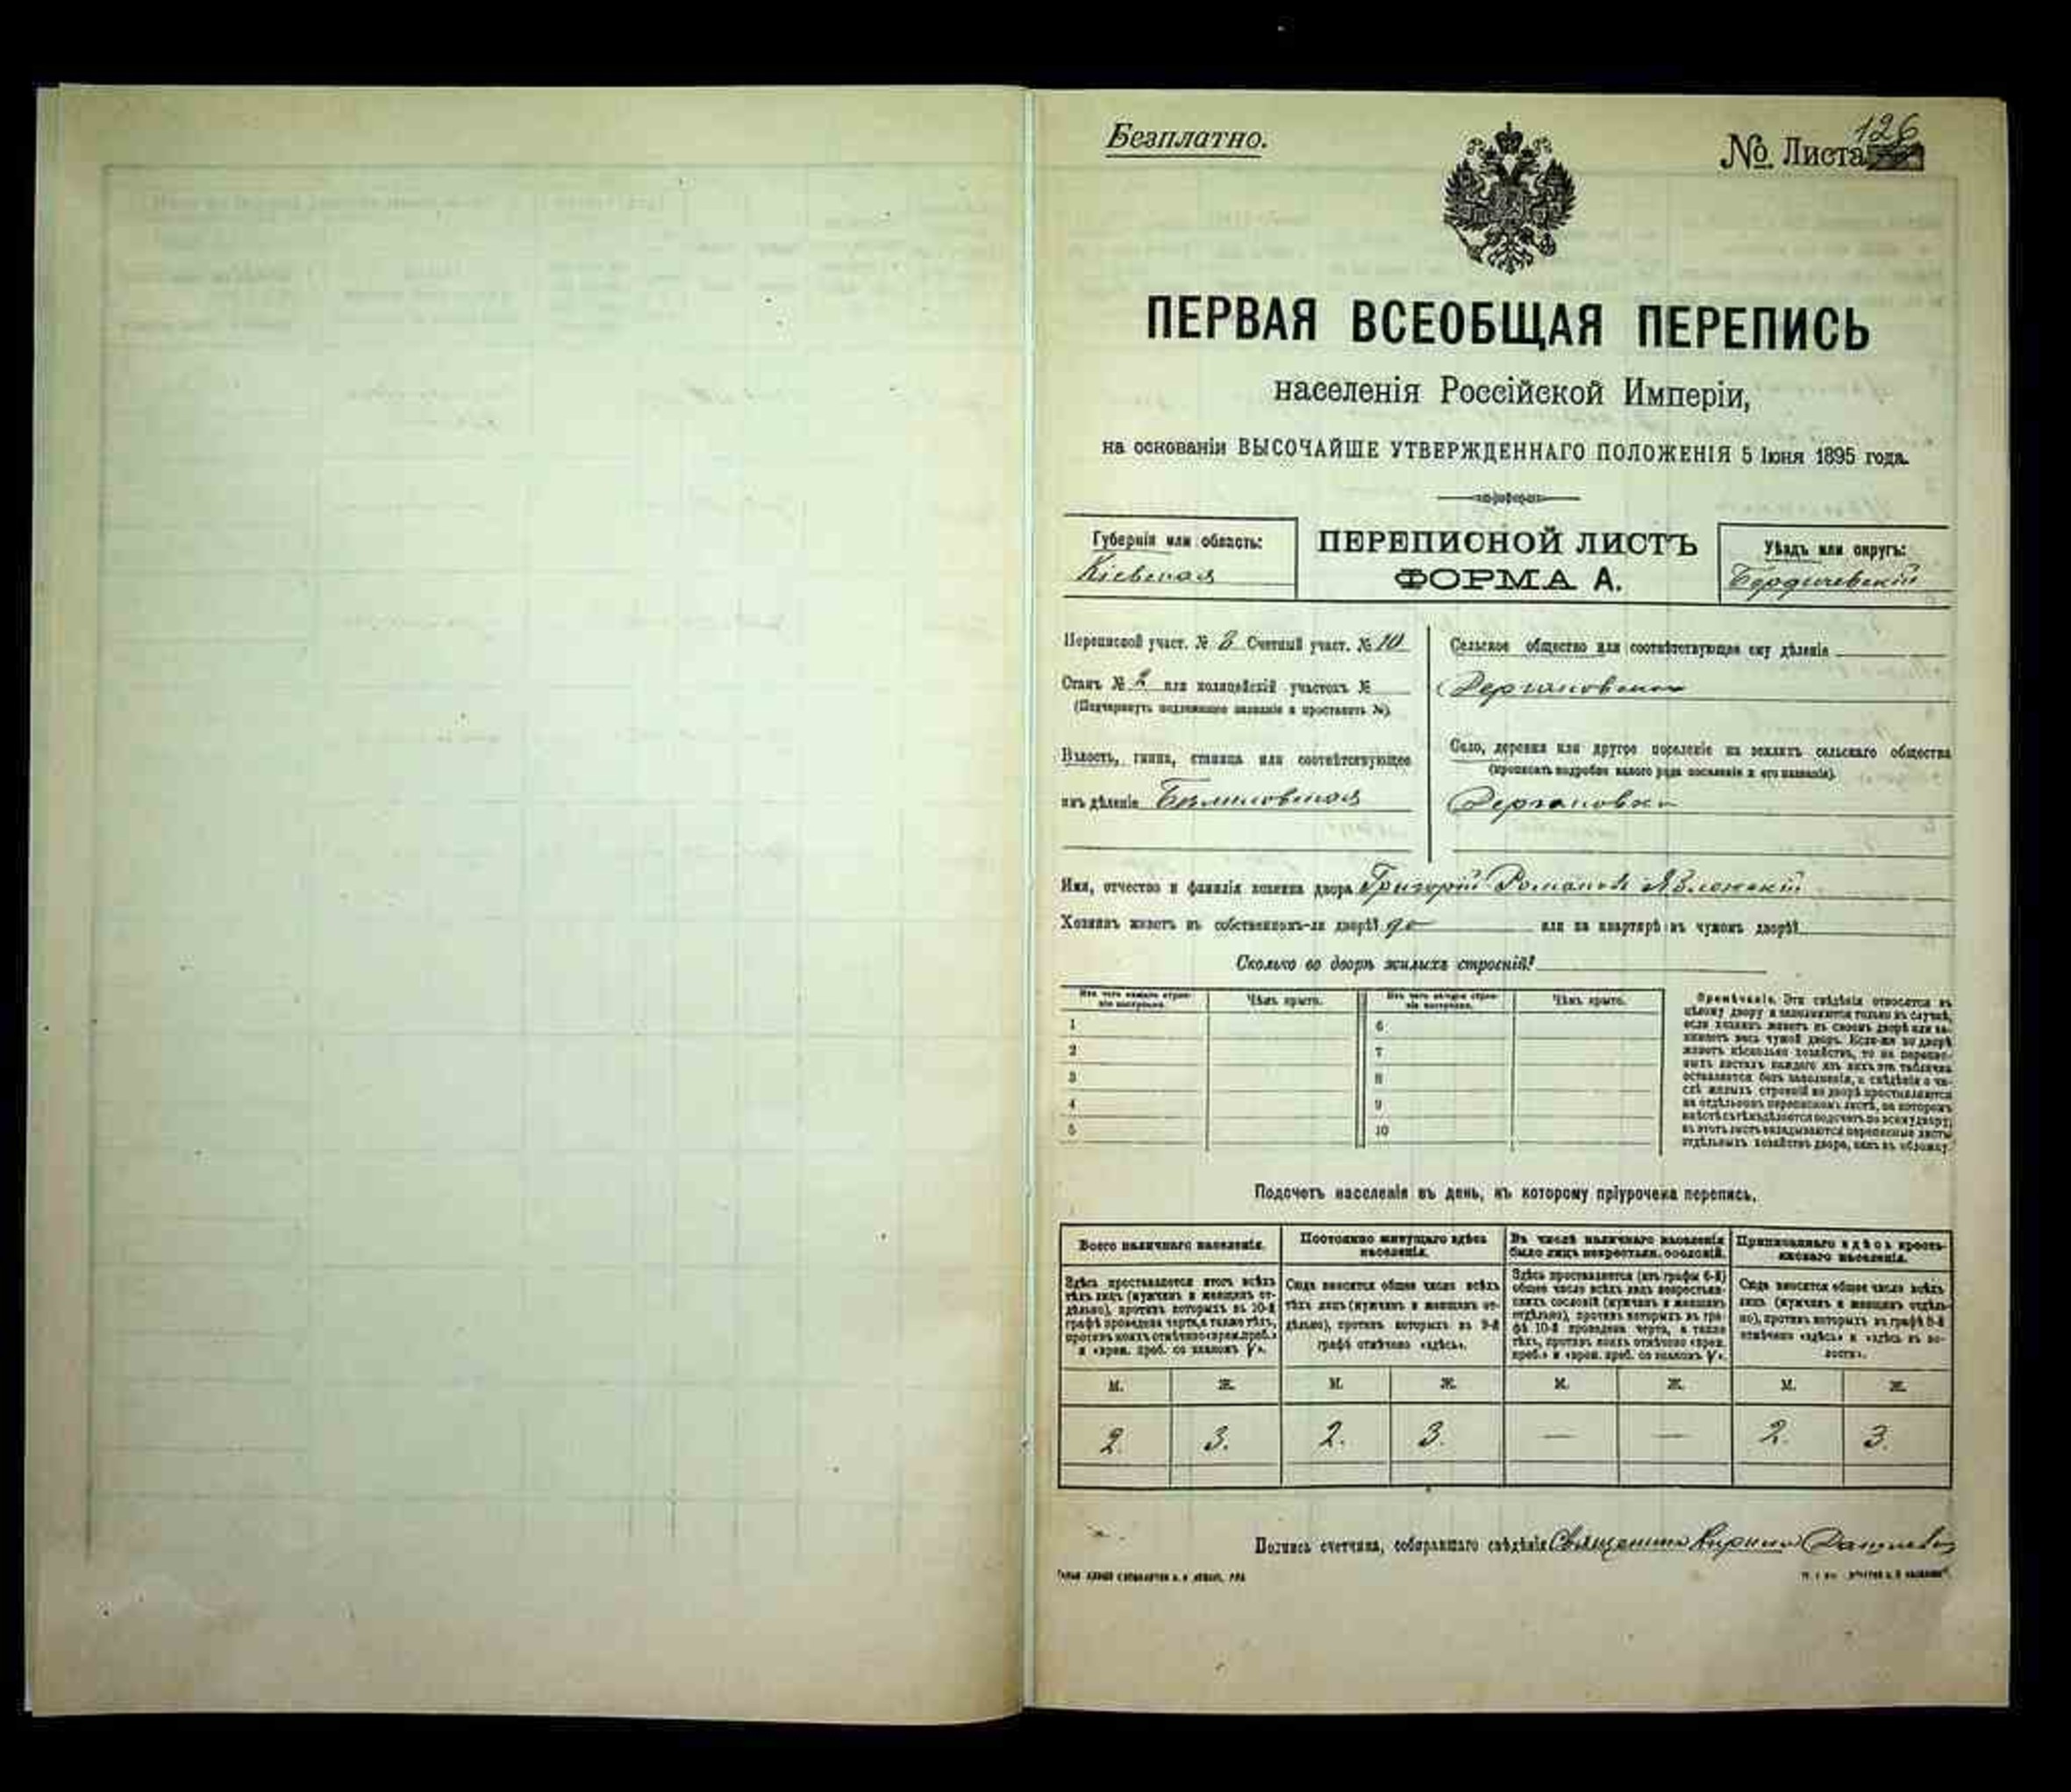 Безплатно.
№ Листа 126
ПЕРВАЯ ВСЕОБЩАЯ ПЕРЕПИСЬ
населенія Россійской Имперіи,
на основаніи ВЫСОЧАЙШЕ УТВЕРЖДЕННАГО ПОЛОЖЕНІЯ 5 Іюня 1895 года.
Губернія или область:
Кіевская
ПЕРЕПИСНОЙ ЛИСТЪ
ФОРМА А.
Уѣздъ или округъ:
Бердичевскій
Переписной участ. № Счетный участ. № 10
Станъ № 2 или полицейскій участокъ №
(Подчеркнуть подлежащее названіе и проставить №).
Волость, гмина, станица или соотвѣтствующее
имъ дѣленіе
Сельское общество или соотвѣтствующее ему дѣленіе
Село, деревня или другое поселеніе на земляхъ сельскаго общества
(прописать подробно какого рода поселеніе и его названіе).
Имя, отчество и фамилія хозяина двора Григорій Романовъ
Хозяинъ живетъ въ собственномъ-ли дворѣ? да или на квартирѣ въ чужомъ дворѣ?
Сколько во дворѣ жилыхъ строеній?
Изъ чего каждое строе-
ніе построено.
Чѣмъ крыто.
Изъ чего каждое строе-
ніе построено.
Чѣмъ крыто.
1
2
3
4
5
6
7
8
9
10
Примѣчаніе. Эти свѣдѣнія относятся къ
цѣлому двору и заполняются только въ случаѣ,
если хозяинъ живетъ въ своемъ дворѣ или за-
нимаетъ весь чужой дворъ. Если-же во дворѣ
живетъ нѣсколько хозяйствъ, то на перепис-
ныхъ листахъ каждаго изъ нихъ эта табличка
оставляется безъ заполненія, а свѣдѣнія о чи-
слѣ жилыхъ строеній во дворѣ проставляются
на отдѣльномъ переписномъ листѣ, на которомъ
вмѣстѣ съ тѣмъ дѣлается подсчетъ по всему двору;
въ этотъ листъ вкладываются переписные листы
отдѣльныхъ хозяйствъ двора, какъ въ обложку.
Подсчетъ населенія въ день, къ которому пріурочена перепись.
Всего наличнаго населенія.
Здѣсь проставляется итогъ всѣхъ
тѣхъ лицъ (мужчинъ и женщинъ от-
дѣльно), противъ которыхъ въ 10-й
графѣ проведена черта, а также тѣхъ,
противъ коихъ отмѣчено «врем. преб.»
и «врем. преб. со знакомъ V».
Постоянно живущаго здѣсь
населенія.
Сюда вносится общее число всѣхъ
тѣхъ лицъ (мужчинъ и женщинъ от-
дѣльно), противъ которыхъ въ 9-й
графѣ отмѣчено «здѣсь».
Въ числѣ наличнаго населенія
было лицъ некрестьян. сословій.
Здѣсь проставляется (изъ графы 6-й)
общее число всѣхъ лицъ некрестьян-
скихъ сословій (мужчинъ и женщинъ
отдѣльно), противъ которыхъ въ гра-
фѣ 10-й проведена черта, а также
тѣхъ, противъ коихъ отмѣчено «врем.
преб.» и «врем. преб. со знакомъ V».
Приписаннаго здѣсь кресть-
янскаго населенія.
Сюда вносится общее число всѣхъ
лицъ (мужчинъ и женщинъ отдѣль-
но), противъ которыхъ въ графѣ 8-й
отмѣчено «здѣсь» и «здѣсь въ во-
лости».
М. Ж. М. Ж. М. Ж. М. Ж.
2. 3. 2. 3. — — 2. 3.
Подпись счетчика, собиравшаго свѣдѣнія Священникъ